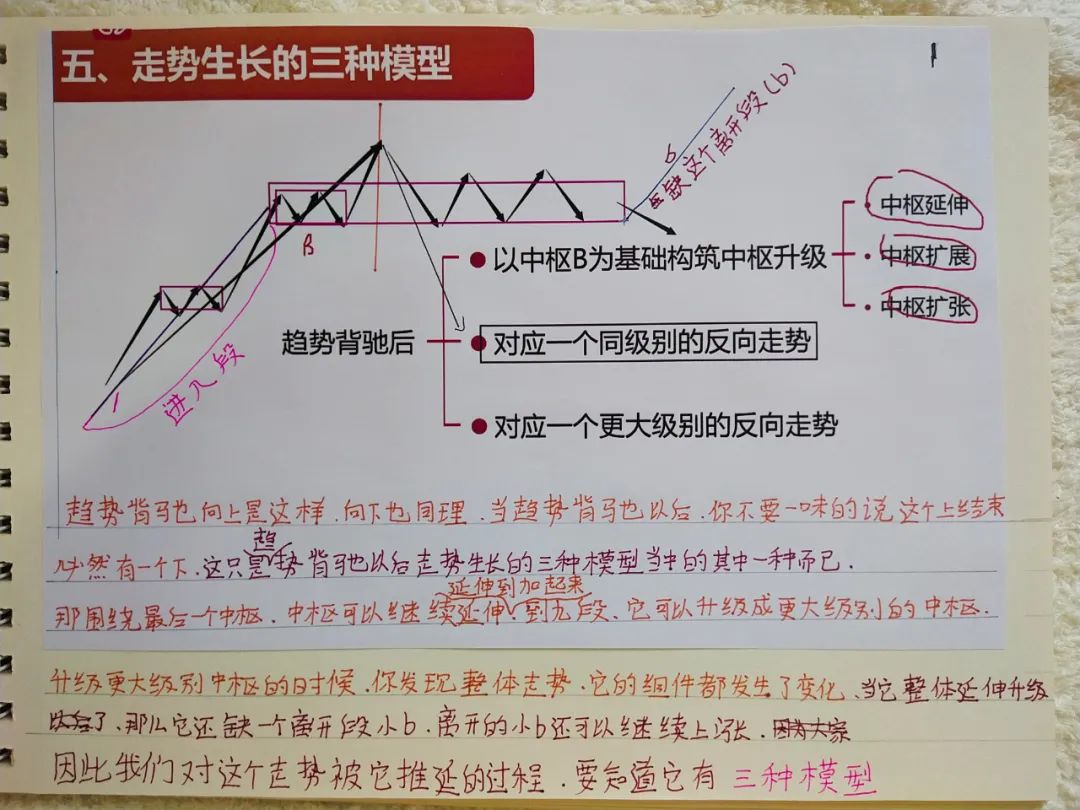 五、走势生长的三种模型
1
b
缺这个离开段(b)
B
进入段
中枢延伸
以中枢B为基础构筑中枢升级
中枢扩展
中枢扩张
趋势背驰后
对应一个同级别的反向走势
对应一个更大级别的反向走势
趋势背驰向上是这样.向下也同理.当趋势背驰以后.你不要一味的说这个上结束
必然有一个下.这只是趋势背驰以后走势生长的三种模型当中的其中一种而已.
延伸到加起来
那围绕最后一个中枢.中枢可以继续延伸.到九段.它可以升级成更大级别的中枢.
升级更大级别中枢的时候.你发现整体走势.它的组件都发生了变化.当它整体延伸升级
以后了.那么它还缺一个离开段小b.离开的小b还可以继续上涨.因为大家
因此我们对这个走势被它推延的过程.要知道它有三种模型